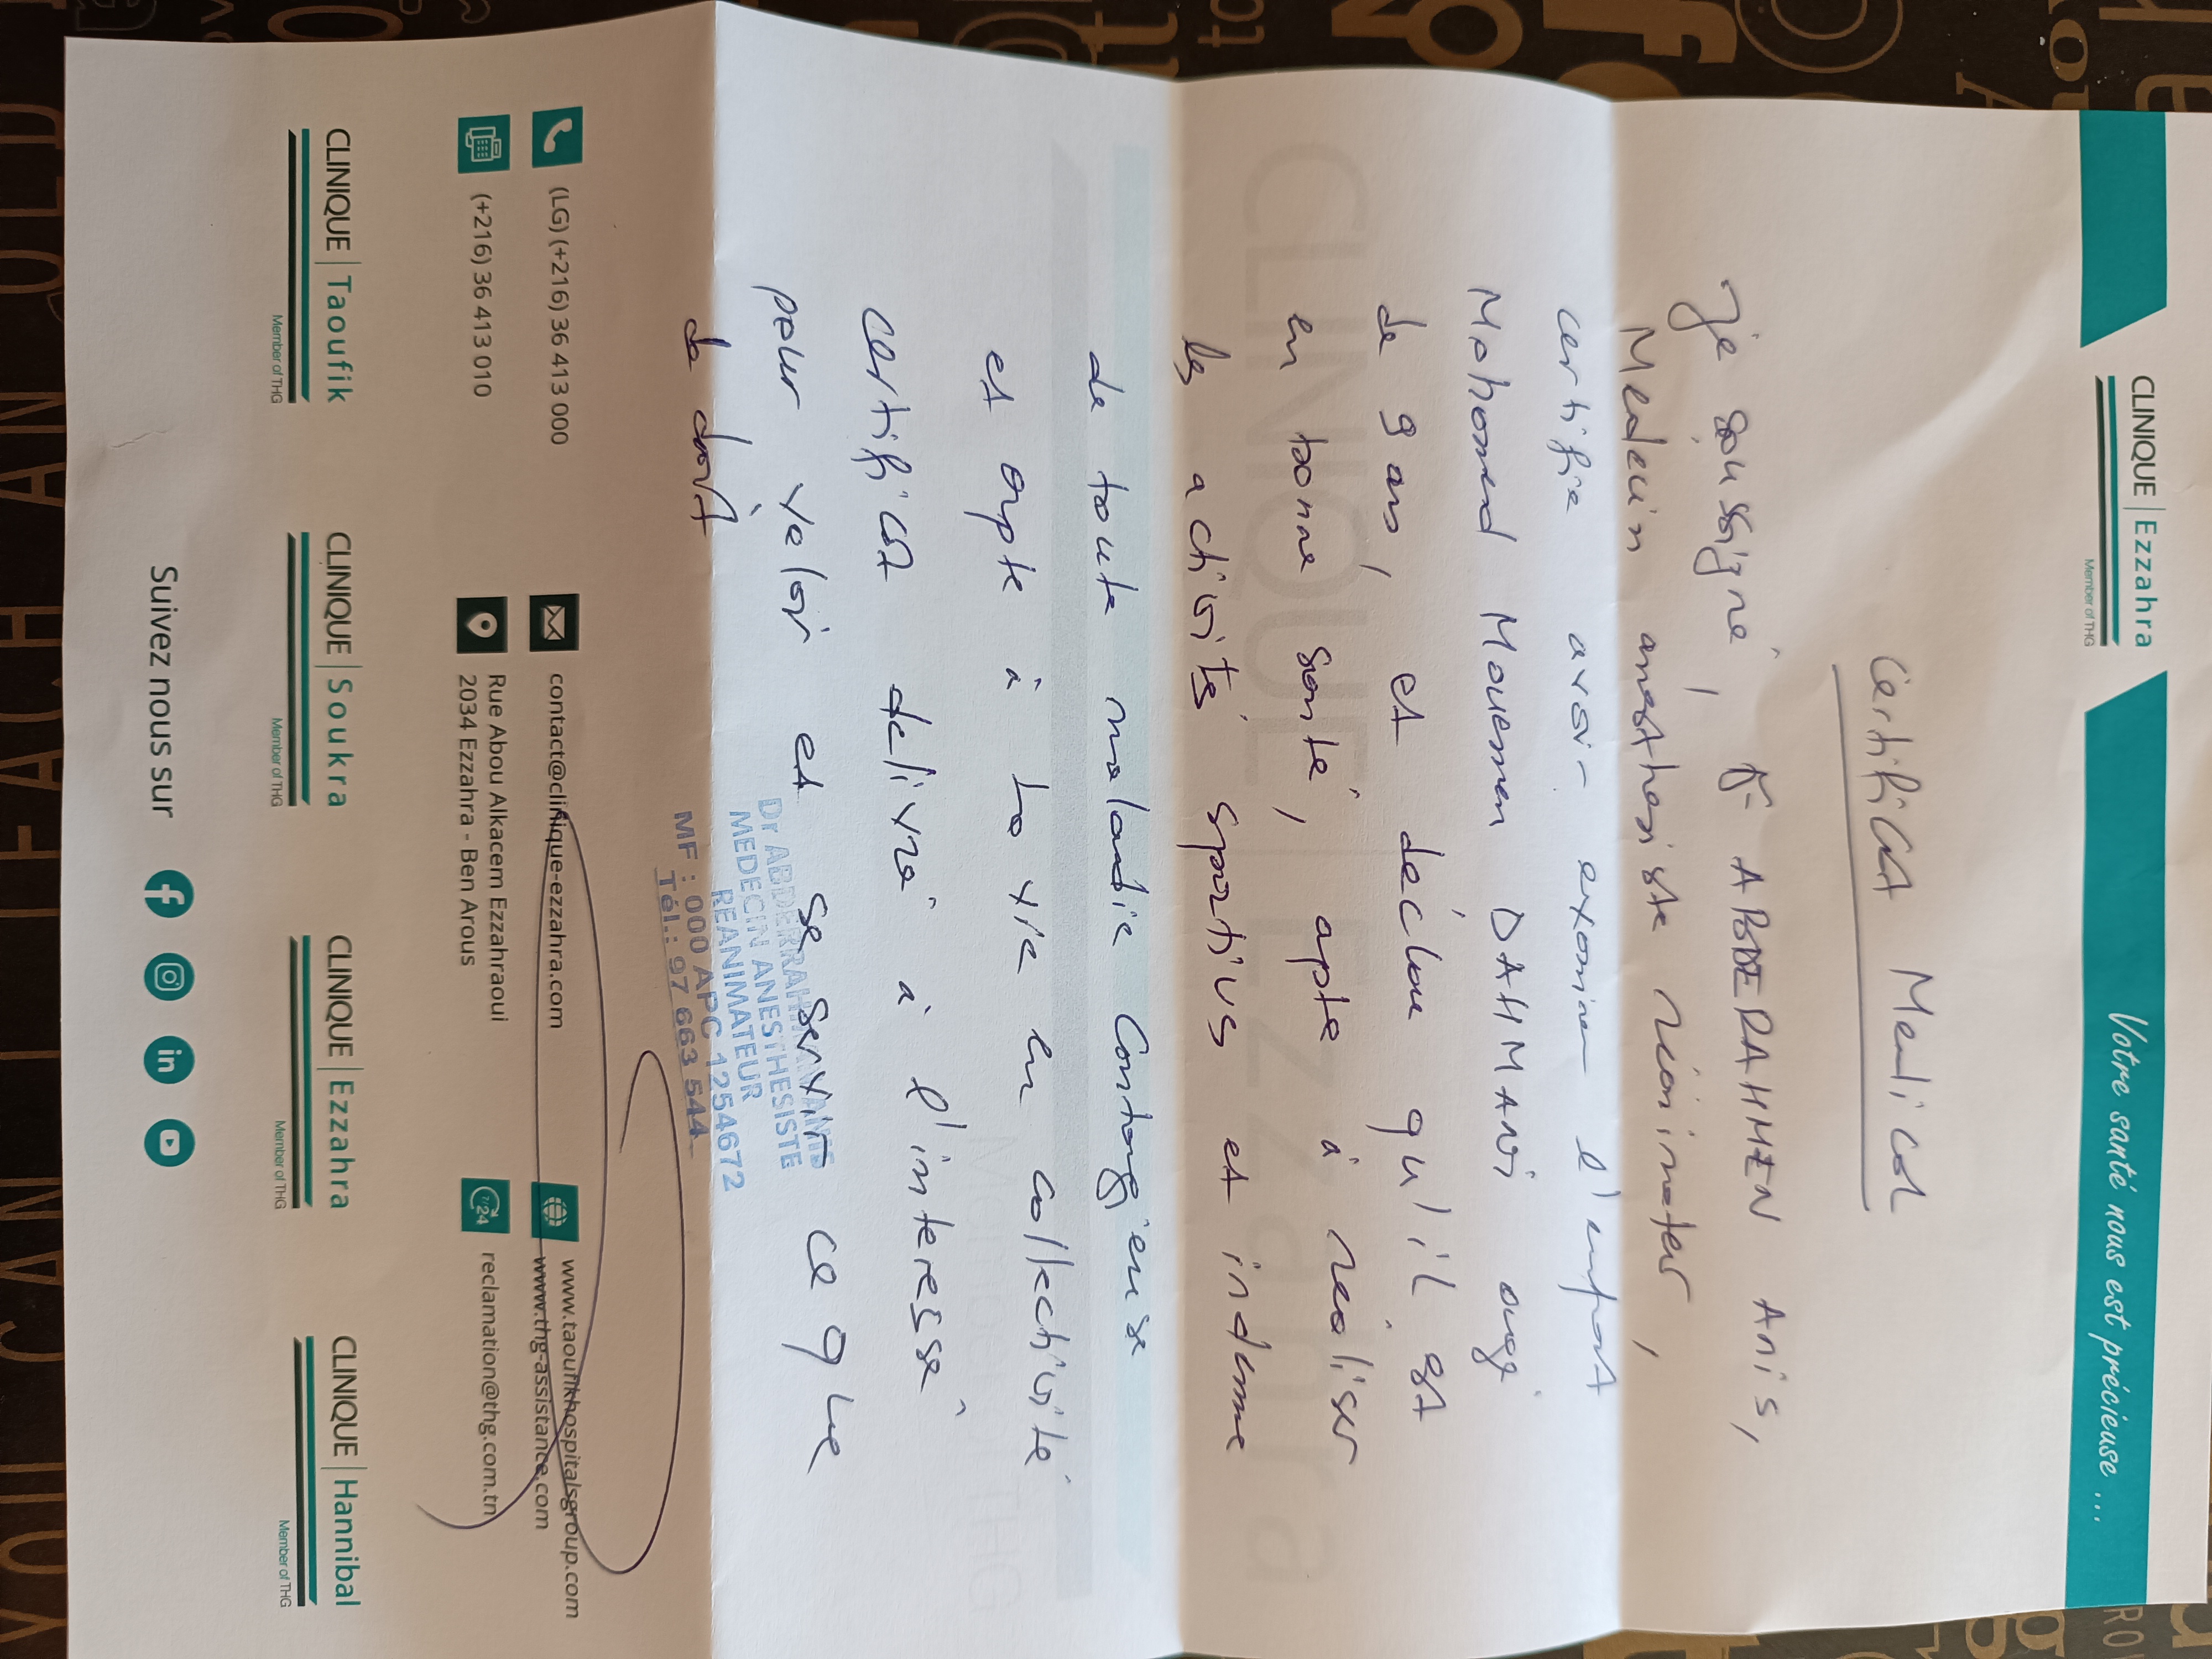 CLINIQUE | Ezzahra
Member of THG
Votre santé nous est précieuse ...
Certificat Medical
Je soussigné, Dr ABDERAHMEN Anis,
Medecin anesthesiste réanimateur,
certifie avoir examiner l'enfant
Mohamed Mouemen DAHMANI agé
de 9 ans, et déclare qu'il est
en bonne santé, apte à réaliser
les activités sportives et indemne
de toute maladie contagieuse
et apte à la vie en collectivité
certificat delivré à l'interessé
pour valoir et se servir ce que
de droit
Dr ABDERRAHMANE
MEDECIN ANESTHESISTE
REANIMATEUR
MF : 000 APC 1254672
Tél.: 97 663 544
(LG) (+216) 36 413 000
(+216) 36 413 010
contact@clinique-ezzahra.com
Rue Abou Alkacem Ezzahraoui
2034 Ezzahra - Ben Arous
www.taoufikhospitalsgroup.com
www.thg-assistance.com
7/24
reclamation@thg.com.tn
CLINIQUE | Taoufik
Member of THG
CLINIQUE | Soukra
Member of THG
CLINIQUE | Ezzahra
Member of THG
CLINIQUE | Hannibal
Member of THG
Suivez nous sur